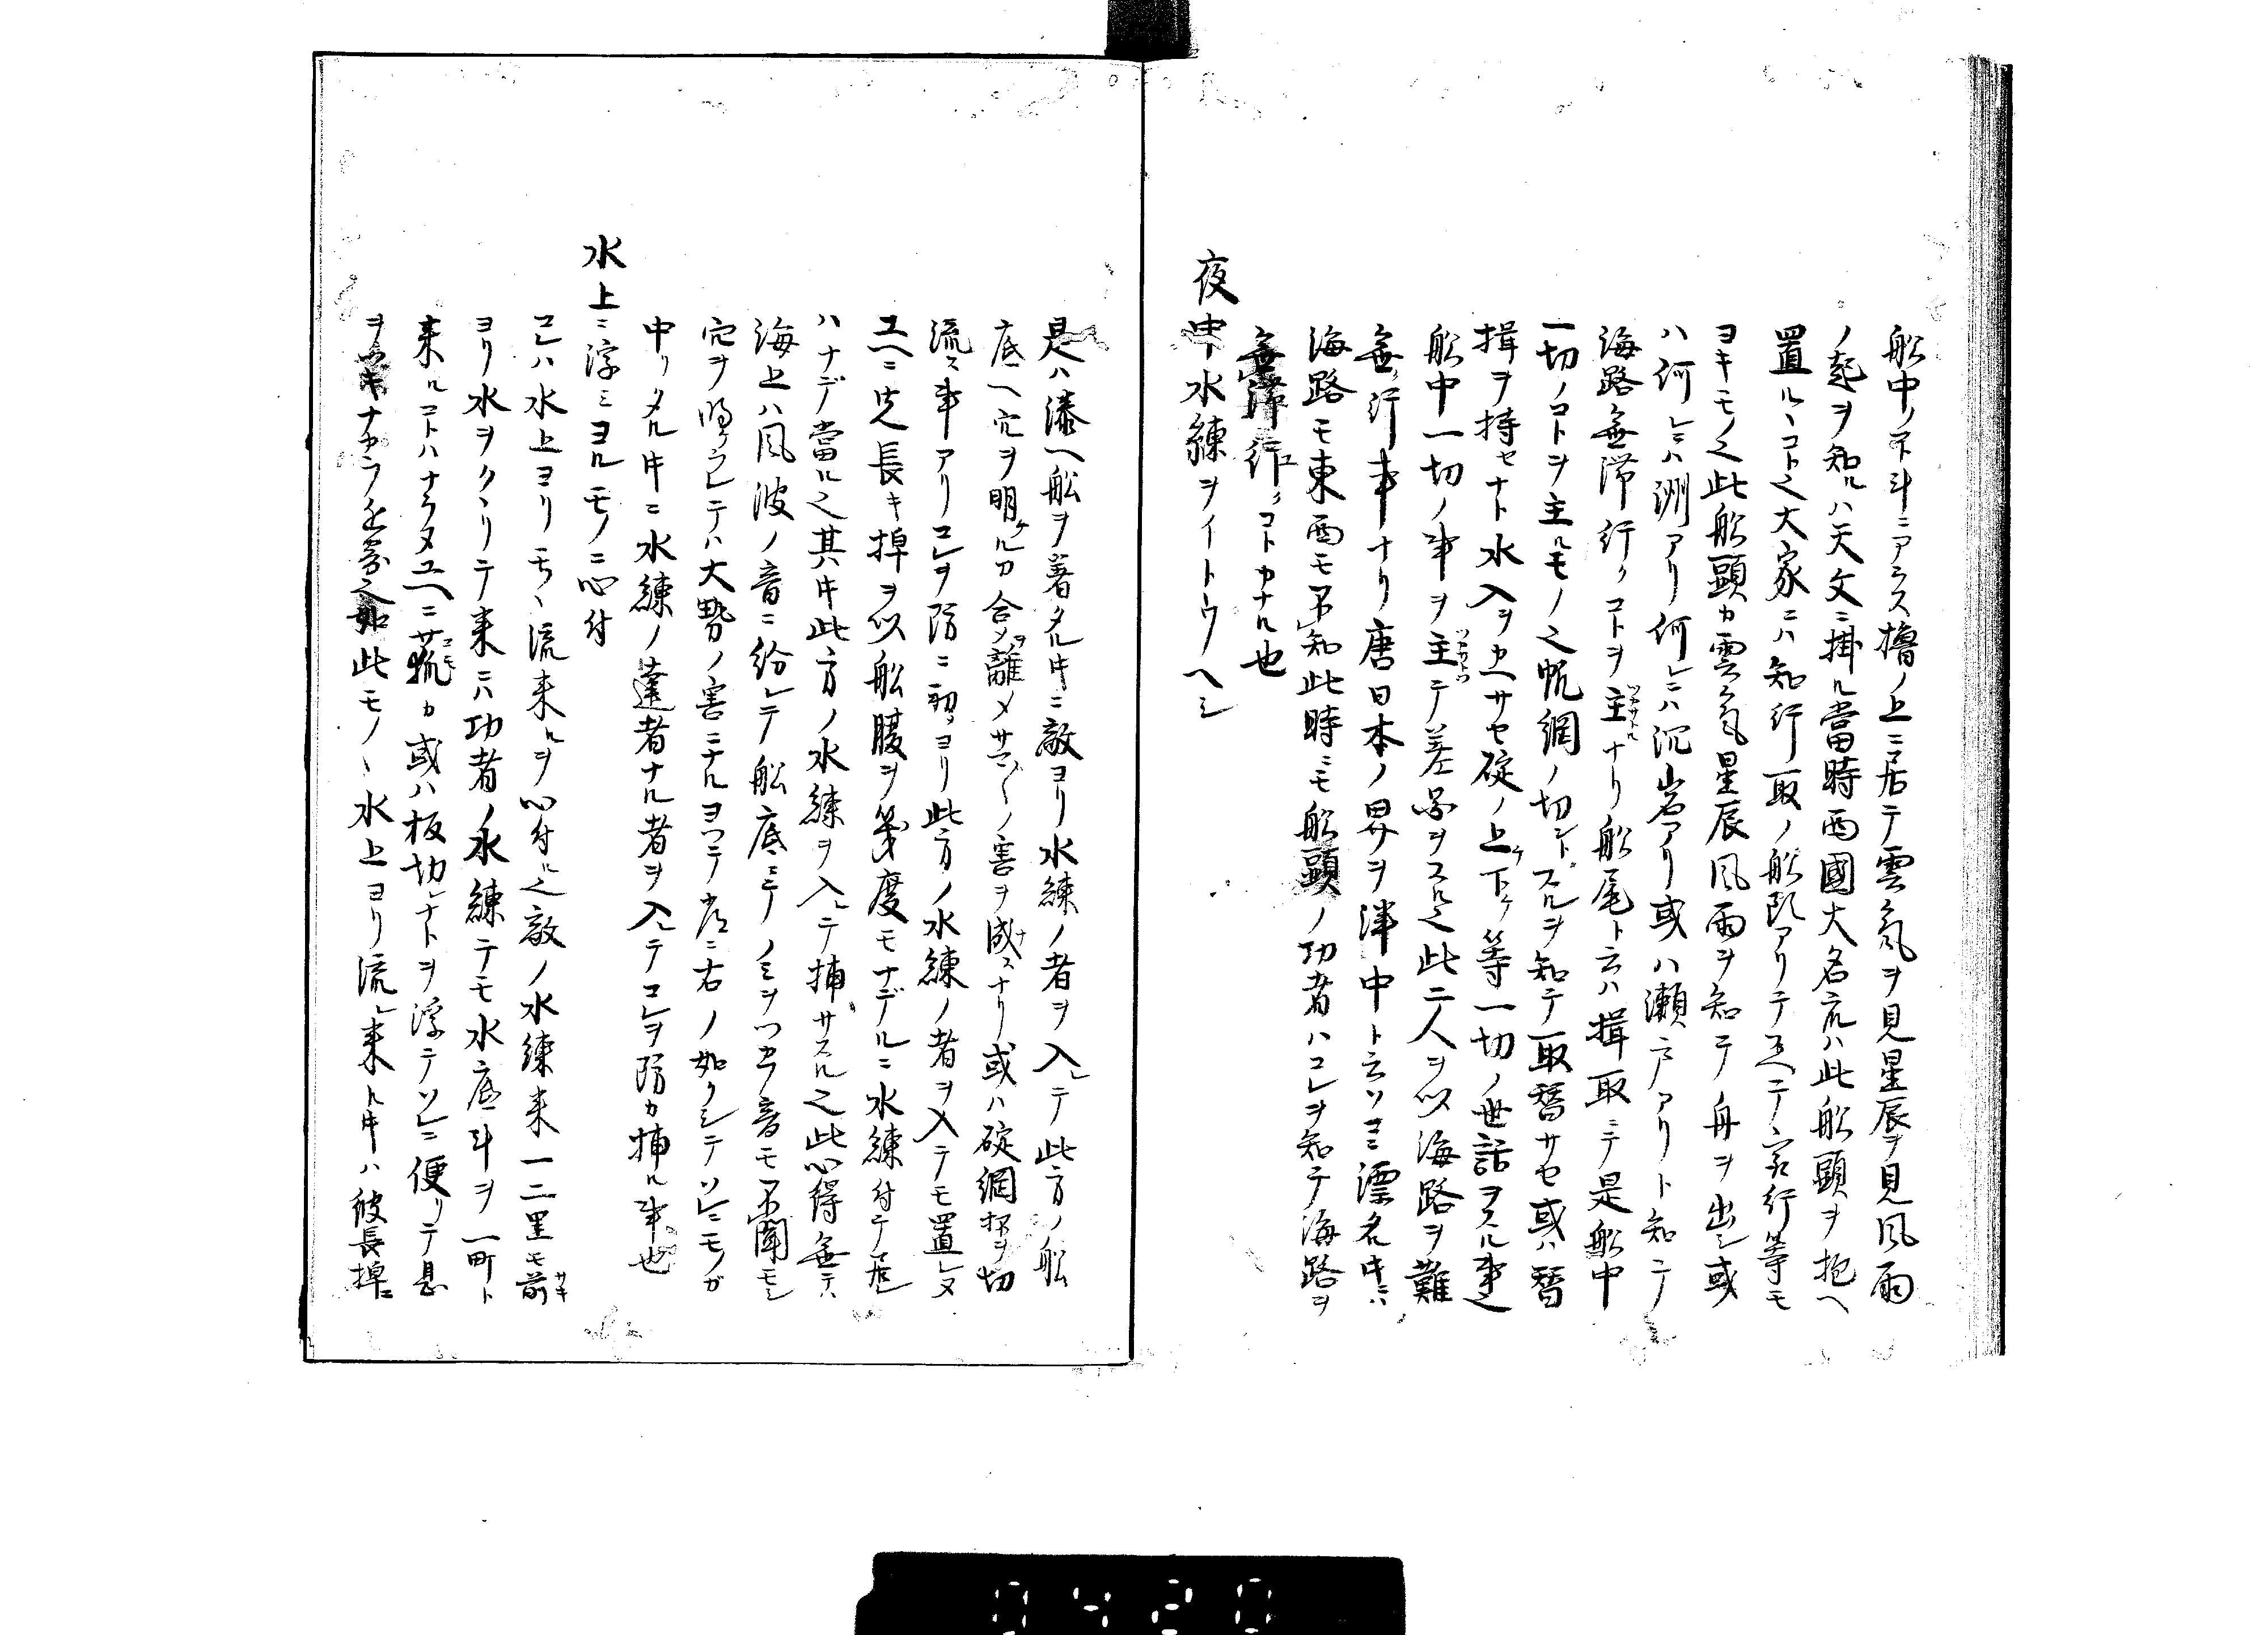 船中ノ下斗ニアラス櫓ノ上ニ居テ雲氣ヲ見星辰ヲ見風雨
ノ起ヲ知ルハ天文ニ掛ル當時西國大名衆ハ此船頭ヲ抱ヘ
置ルヽコト之大家ニハ知行取ノ船頭アリテ家行等モ
ヨキモノ之此船頭カ雲氣星辰風雨ヲ知テ舟ヲ出シ或
ハ何レニハ洲アリ何レニハ沉岩アリ或ハ瀬戸アリト知テ
海路無滞行クコトヲ主ルナリ船尾ト云ハ揖取ニテ是船中
一切ノコトヲ主ルモノ之帆綱ノ切ントスルヲ知テ取替サセ或ハ替
揖ヲ持セナト水入ヲカヘサセ碇ノ上ケ下ケ等一切ノ世話ヲスル事之
船中一切ノ事ヲ主テ差図ヲスル之此二人ヲ以海路ヲ難
無ク行事ナリ唐日本ノ界ヲ津中ト云ソコニ漂フ時ニハ
海路モ東西モ不知此時ニモ船頭ノ功者ハコレヲ知テ海路ヲ
無滞行クコトカナル也
夜中水練ヲイトウヘシ
是ハ湊ヘ船ヲ著タル時ニ敵ヨリ水練ノ者ヲ入レテ此方ノ船
底ヘ穴ヲ明ケルカ合メヲ離メサマ〱ノ害ヲ成スナリ或ハ碇綱抔ヲ切
流ス事アリコレヲ防ニ初ヨリ此方ノ水練ノ者ヲ入テモ置レヌ
ユヘニ先長キ掉ヲ以船腹ヲ幾度モナデルニ水練付テ居レ
ハナデ當ル之其時此方ノ水練ヲ入レテ捕サスル之此心得無テハ
海上ハ風波ノ音ニ紛レテ船底ニテノミヲツク音モ不聞モシ
穴ヲ明ラレテハ大勢ノ害ニナルヨツテ右ノ如クシテソレニモノガ
中リタル時ニ水練ノ達者ナル者ヲ入レテコレヲ防カ捕ル事也
水上ニ浮ミヨルモノニ心付
コレハ水上ヨリモノヽ流来ルヲ心付ル之敵ノ水練来一二里モ前
ヨリ水ヲクヽリテ来ニハ功者ノ水練テモ水底斗ヲ一町ト
来ルコトハナラヌユヘニ菰カ或ハ板切レナトヲ浮テソレニ便リテ息
ヲツキナカラ來ル之如此モノヽ水上ヨリ流レ来ル時ハ彼長掉ニ